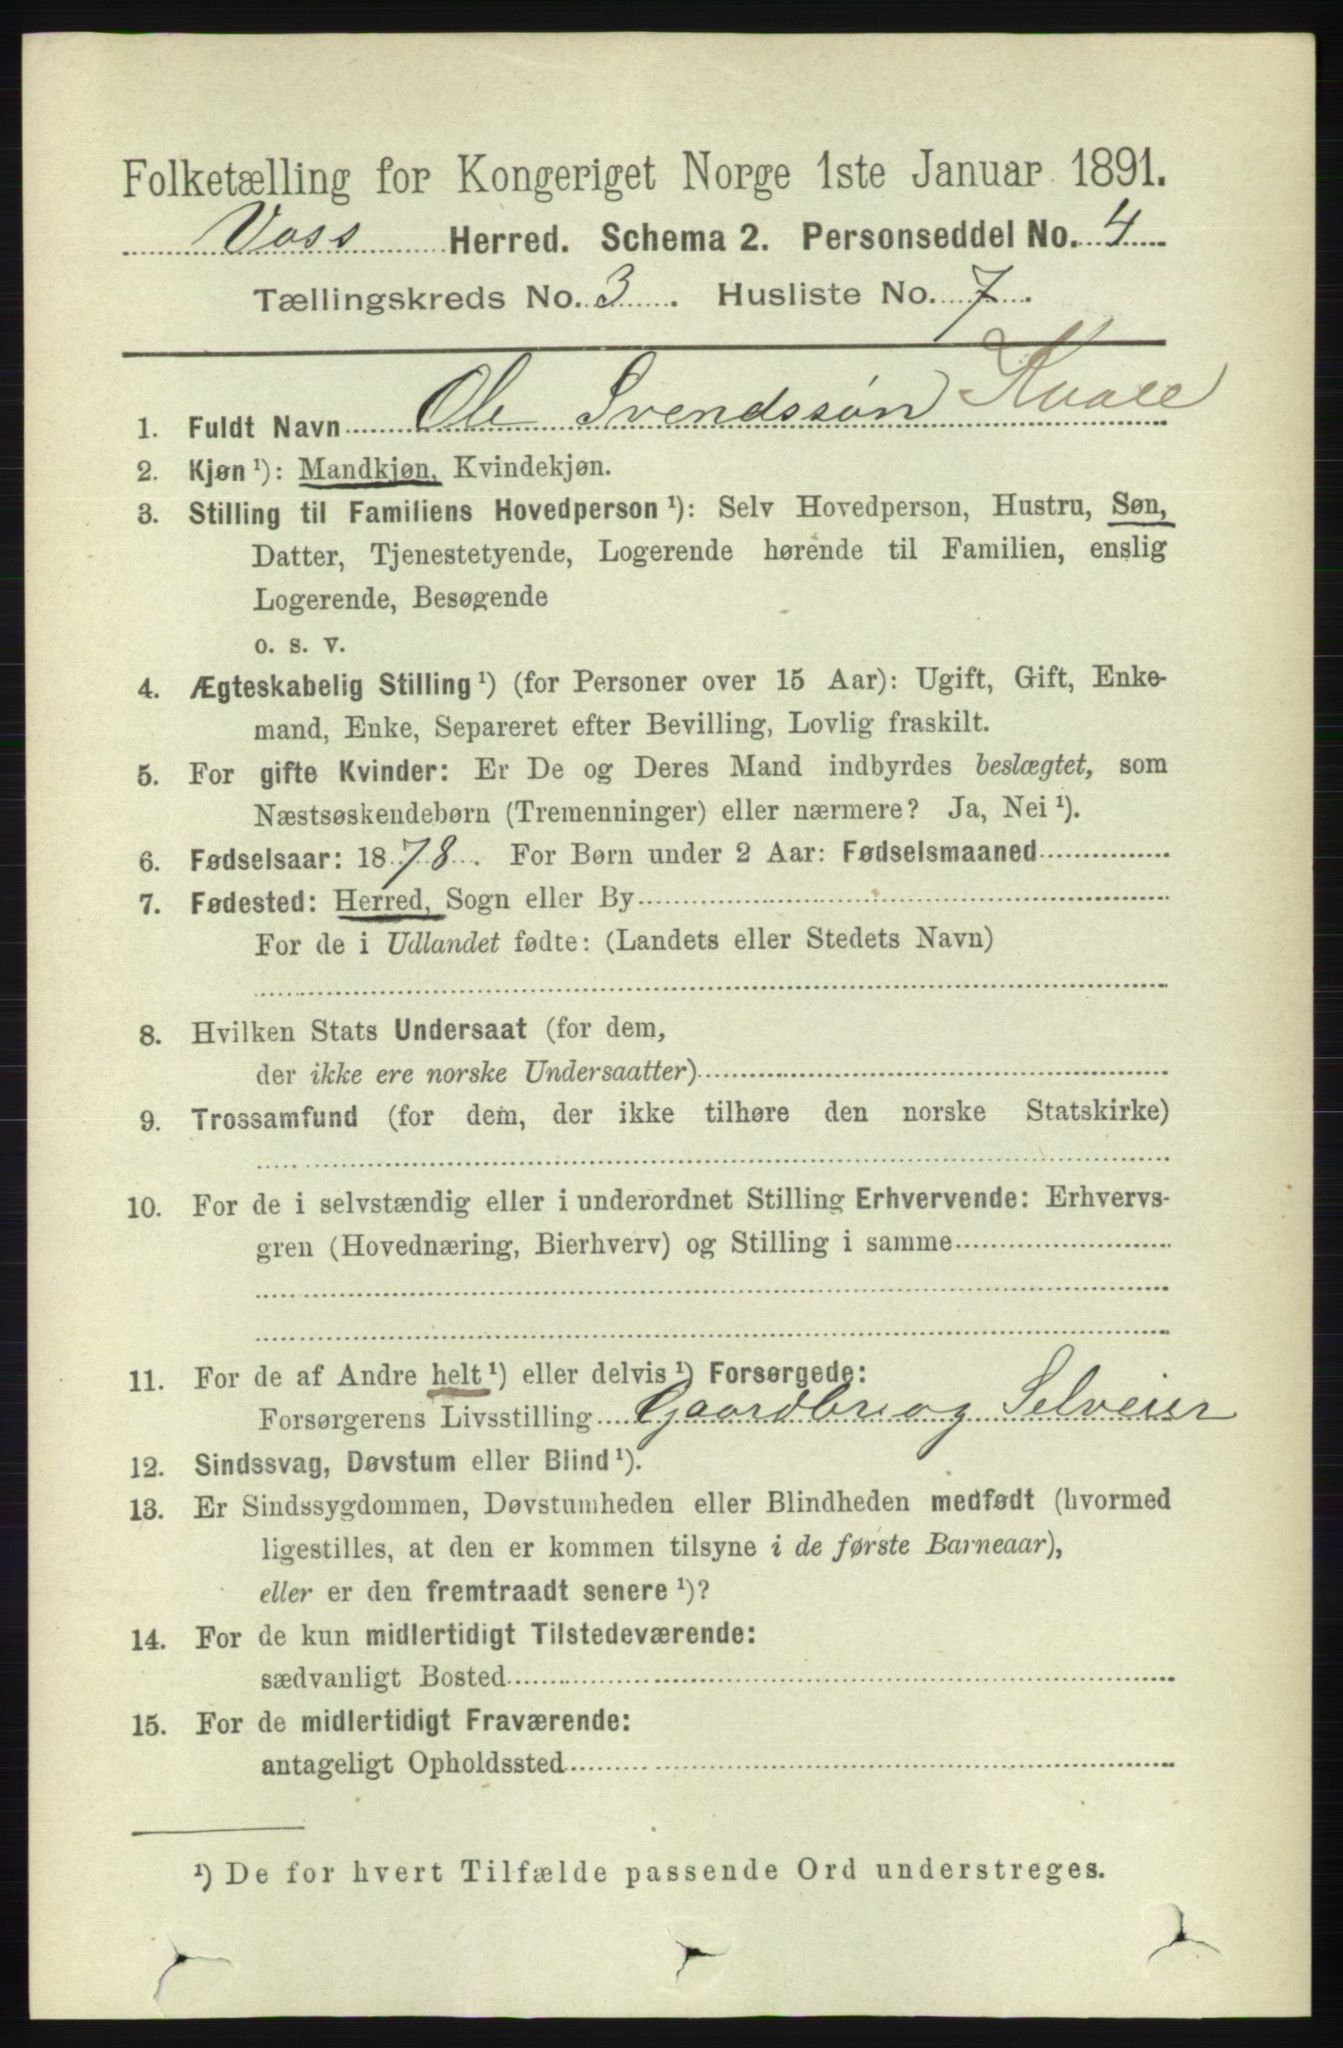 Folketælling for Kongeriget Norge 1ste Januar 1891.
Voss Herred. Schema 2. Personseddel No. 4
Tællingskreds No. 3. Husliste No. 7.
1. Fuldt Navn Ole Svendssøn Kvale
2. Kjøn ¹): Mandkjøn, Kvindekjøn.
3. Stilling til Familiens Hovedperson ¹): Selv Hovedperson, Hustru, Søn,
Datter, Tjenestetyende, Logerende hørende til Familien, enslig
Logerende, Besøgende
o. s. v.
4. Ægteskabelig Stilling ¹) (for Personer over 15 Aar): Ugift, Gift, Enke-
mand, Enke, Separeret efter Bevilling, Lovlig fraskilt.
5. For gifte Kvinder: Er De og Deres Mand indbyrdes beslægtet, som
Næstsøskendebørn (Tremenninger) eller nærmere? Ja, Nei ¹).
6. Fødselsaar: 1878. For Børn under 2 Aar: Fødselsmaaned
7. Fødested: Herred, Sogn eller By
For de i Udlandet fødte: (Landets eller Stedets Navn)
8. Hvilken Stats Undersaat (for dem,
der ikke ere norske Undersaatter)
9. Trossamfund (for dem, der ikke tilhøre den norske Statskirke)
10. For de i selvstændig eller i underordnet Stilling Erhvervende: Erhvervs-
gren (Hovednæring, Bierhverv) og Stilling i samme
11. For de af Andre helt ¹) eller delvis ¹) Forsørgede:
Forsørgerens Livsstilling Gaardbr og Selveier
12. Sindssvag, Døvstum eller Blind ¹).
13. Er Sindssygdommen, Døvstumheden eller Blindheden medfødt (hvormed
ligestilles, at den er kommen tilsyne i de første Barneaar),
eller er den fremtraadt senere ¹)?
14. For de kun midlertidigt Tilstedeværende:
sædvanligt Bosted
15. For de midlertidigt Fraværende:
antageligt Opholdssted
¹) De for hvert Tilfælde passende Ord understreges.